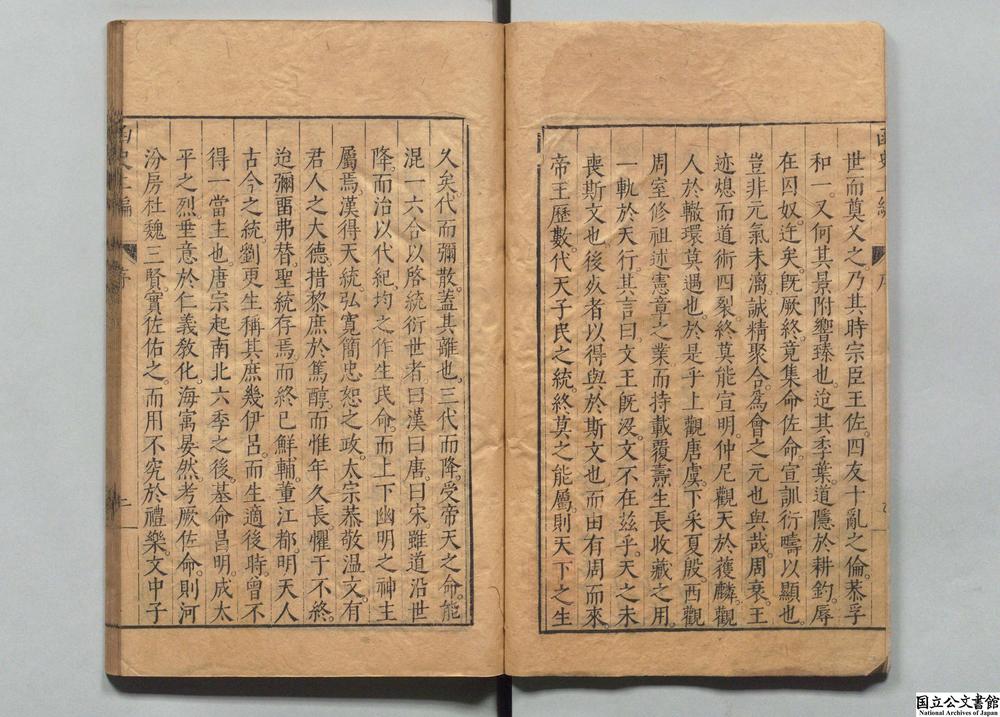 世而奠乂之乃其時宗臣王佐。四友十亂之倫。恭孚
和一。又何其景附響臻也。迨其季葉。道隱於耕釣。辱
在囚奴。迕矣。旣厥終。竟集命佐命。宣訓衍疇以顯也
豈非元氣未漓。誠精聚合。爲會之元也與哉。周衰。王
迹熄而道術四裂。終莫能宣明。仲尼觀天於獲麟。觀
人於轍環。莫遇也。於是乎上觀唐虞。下采夏殷。西觀
周室。修祖述憲章之業。而持載覆燾。生長收藏之用。
一軌於天行。其言曰。文王旣沒。文不在茲乎。天之未
喪斯文也。後𣦸者以得與於斯文也。而由有周而來。
帝王歷數。代天子民之統。終莫之能屬。則天下之生
久矣。代而彌散。蓋其離也。三代而降。受帝天之命。能
混一六合以啓統衍世者。曰漢曰唐。曰宋。雖道沿世
降。而治以代紀。均之作生民命。而上下幽明之神主
屬焉。漢得天統。弘寬簡忠恕之政。太宗恭敬温文。有
君人之大德。措黎庶於篤醇。而惟年久長。懼于不終。
迨彌畱弗替。聖統存焉。而終已鮮輔。董江都。明天人
古今之統。劉更生稱其庶幾伊呂。而生適後時。曾不
得一當主也。唐宗起南北六季之後。基命昌明。成太
平之烈。垂意於仁義敎化。海㝢晏然。考厥佐命。則河
汾房杜魏三賢實佐佑之。而用不究於禮樂。文中子
函史上編
序
二
国立公文書館
National Archives of Japan